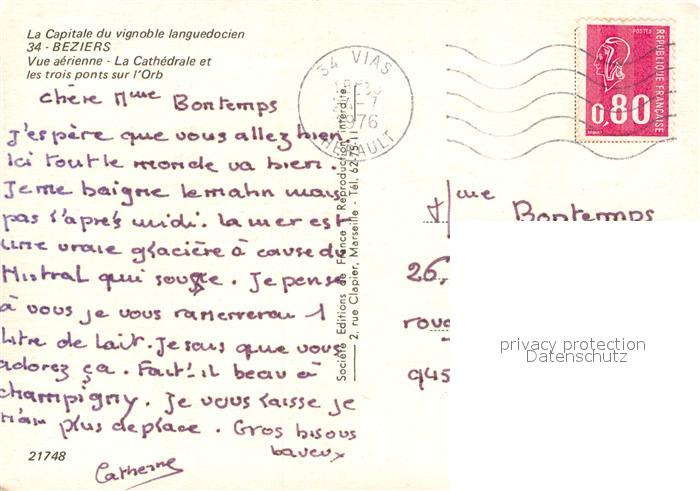 La Capitale du vignoble languedocien
34 - BEZIERS
Vue aérienne - La Cathédrale et
les trois ponts sur l'Orb
chère Mme Bontemps
j'espère que vous allez bien.
Ici tout le monde va bien.
Je me baigne le matin mais
pas l'après midi. la mer est
une vraie glacière à cause du
Mistral qui souffle. Je pense
à vous je vous ramènerai 1
litre de lait. Je sais que vous
adorez ça. Fait-il beau à
champigny. Je vous laisse je
n'ai plus de place. Gros bisous
baveux
Catherine
21748
Société Editions de France - Reproduction interdite
2, rue Clapier, Marseille - Tél. 62-75-11
34 VIAS
-7
1976
HERAULT
POSTES
REPUBLIQUE FRANÇAISE
0,80
Mme Bontemps
26,
945
privacy protection
Datenschutz